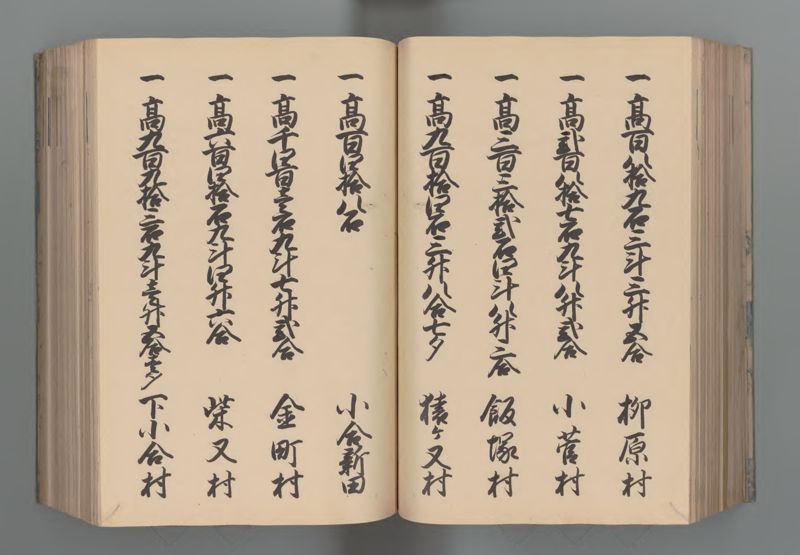 一 髙百八拾九石三斗三升五合 柳原村
一 髙弐百八拾七石九斗八升弐合 小菅村
一 髙三百三拾弐石四斗八升二合 飯塚村
一 髙九百拾四石三升八合七夕 猿ヶ又村
一 髙百四拾八石 小合新田
一 髙千四百壱石九斗七升弐合 金町村
一 髙六百四拾石九斗四升六合 柴又村
一 髙九百九拾三石九斗壱升五合夕 下小合村